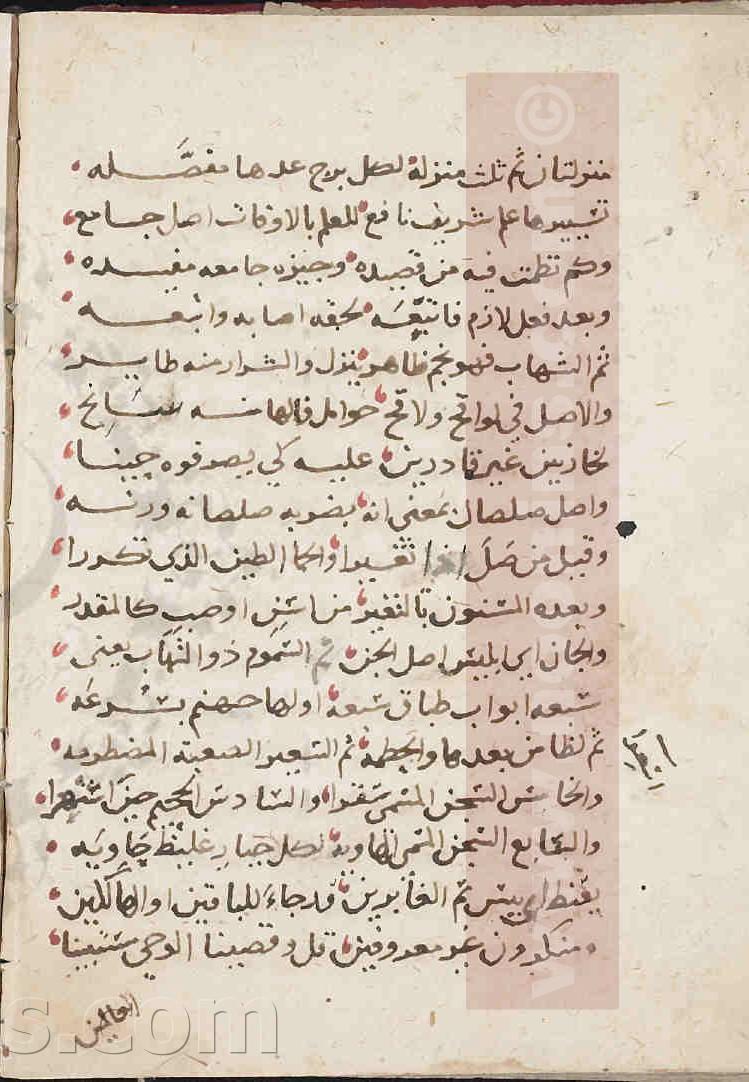 منزلتان ثم ثلث منزله لكل برج عدها مفصّله
تسييرها علم شريف نافع للعلم بالاوقات اصل جامع
وكم نظمت فيه من قصيده وجيزه جامعه مفيده
وبعد فعل لازم فاتبَعَه لحقه اصابه واتبعه
ثم الشهاب فهو نجم ظاهر ينزل والشرار منه طاير
والاصل في لواقح ولاقح حوامل فالها منه سَانح
لخازنين غير قادرين عليه كي يصرفوه حينا
واصل صلصال بمعنى انه بضربه صلصانه ورنه
وقيل من صَلّ اذا تغيرا والحما الطين الذي تكررا
وبعده المسنون بالتغير من اسن او صب كالمقدر
والجان اي ابليس اصل الجن ثم السموم ذو التهاب يعني
سبعه ابواب طباق سبعه اولها جهنم بسرعه
ثم لظا من بعدها والحطمه ثم السعير الصعبة المضطرمه
والخامس السجن المسمى سقرا والسادس الجحيم حين اشتهرا
والسابع السجن المسمى الهاويه لكل جبار غليظ جاويه
يقنط اي ييس ثم الغابرين قد جاء للباقين او الهالكين
ومنكرون غير معروفين قل وقضينا الوحي مستبينا
العالمين